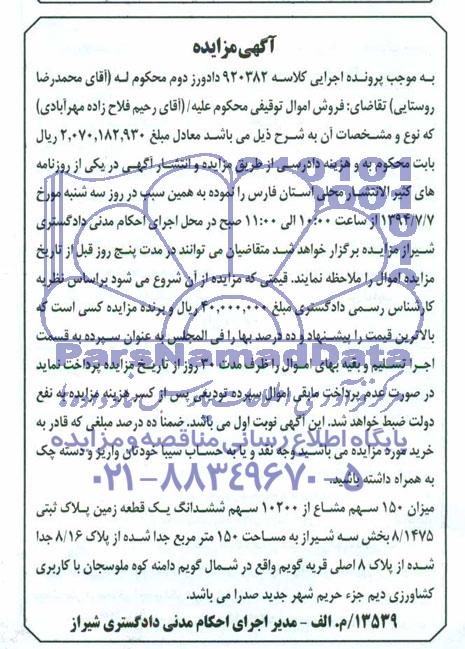 آگهی مزایده
به موجب پرونده اجرایی کلاسه ۹۲۰۳۸۲ دادورز دوم محکوم له (آقای محمدرضا
روستایی) تقاضای: فروش اموال توقیفی محکوم علیه/ (آقای رحیم فلاح زاده مهرآبادی)
که نوع و مشخصات آن به شرح ذیل می باشد معادل مبلغ ۲,۰۷۰,۱۸۲,۹۳۰ ریال
بابت محکوم به و هزینه دادرسی از طریق مزایده و انتشار آگهی در یکی از روزنامه
های کثیرالانتشار محلی استان فارس را نموده به همین سبب در روز سه شنبه مورخ
۱۳۹۴/۷/۷ از ساعت ۱۰:۰۰ الی ۱۱:۰۰ صبح در محل اجرای احکام مدنی دادگستری
شیراز مزایده برگزار خواهد شد متقاضیان می توانند در مدت پنج روز قبل از تاریخ
مزایده اموال را ملاحظه نمایند. قیمتی که مزایده از آن شروع می شود براساس نظریه
کارشناس رسمی دادگستری مبلغ ۴۰,۰۰۰,۰۰۰ ریال و برنده مزایده کسی است که
بالاترین قیمت را پیشنهاد و ده درصد بها را فی المجلس به عنوان سپرده به قسمت
اجرا تسلیم و بقیه بهای اموال را ظرف مدت ۳۰ روز از تاریخ مزایده پرداخت نماید
ParsNamadData
در صورت عدم پرداخت مابقی اموال سپرده تودیعی پس از کسر هزینه مزایده به نفع
دولت ضبط خواهد شد. این آگهی نوبت اول می باشد. ضمنا ده درصد مبلغی که قادر به
خرید مورد مزایده می باشید وجه نقد و یا به حساب سیبا خودتان واریز و دسته چک
پایگاه اطلاع رسانی مناقصه و مزایده
به همراه داشته باشید.
۰۲۱-۸۸۳۴۹۶۷۰-۵
میزان ۱۵۰ سهم مشاع از ۱۰۲۰۰ سهم ششدانگ یک قطعه زمین پلاک ثبتی
۸/۱۴۷۵ بخش سه شیراز به مساحت ۱۵۰ متر مربع جدا شده از پلاک ۸/۱۶ جدا
شده از پلاک ۸ اصلی قریه گویم واقع در شمال گویم دامنه کوه ملوسجان با کاربری
کشاورزی دیم جزء حریم شهر جدید صدرا می باشد.
۱۳۵۳۹/م. الف - مدیر اجرای احکام مدنی دادگستری شیراز